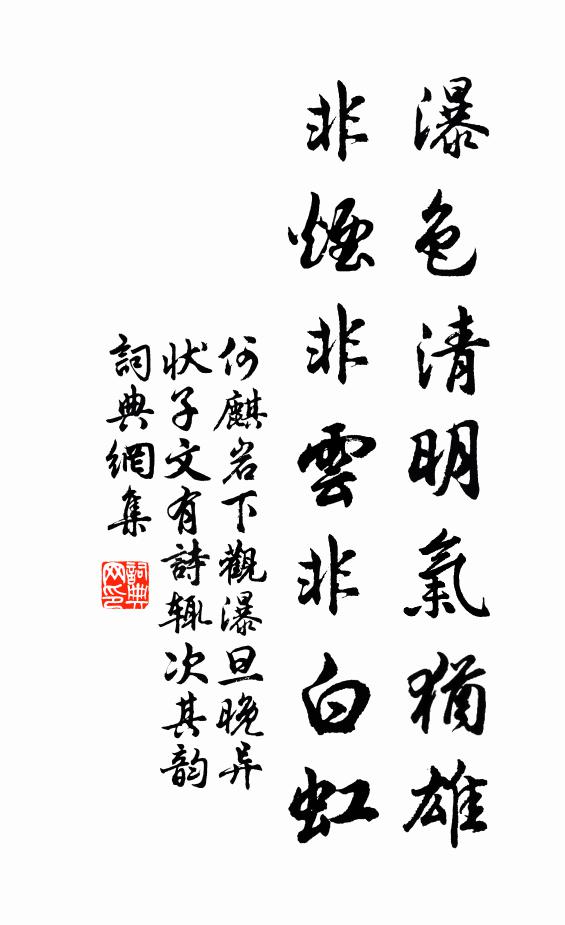 瀑色清明氣猶雄
非煙非雲非白虹
何麒岩下觀瀑旦晚异
状子文有詩辄次其韵
詞典網集
詞典网印